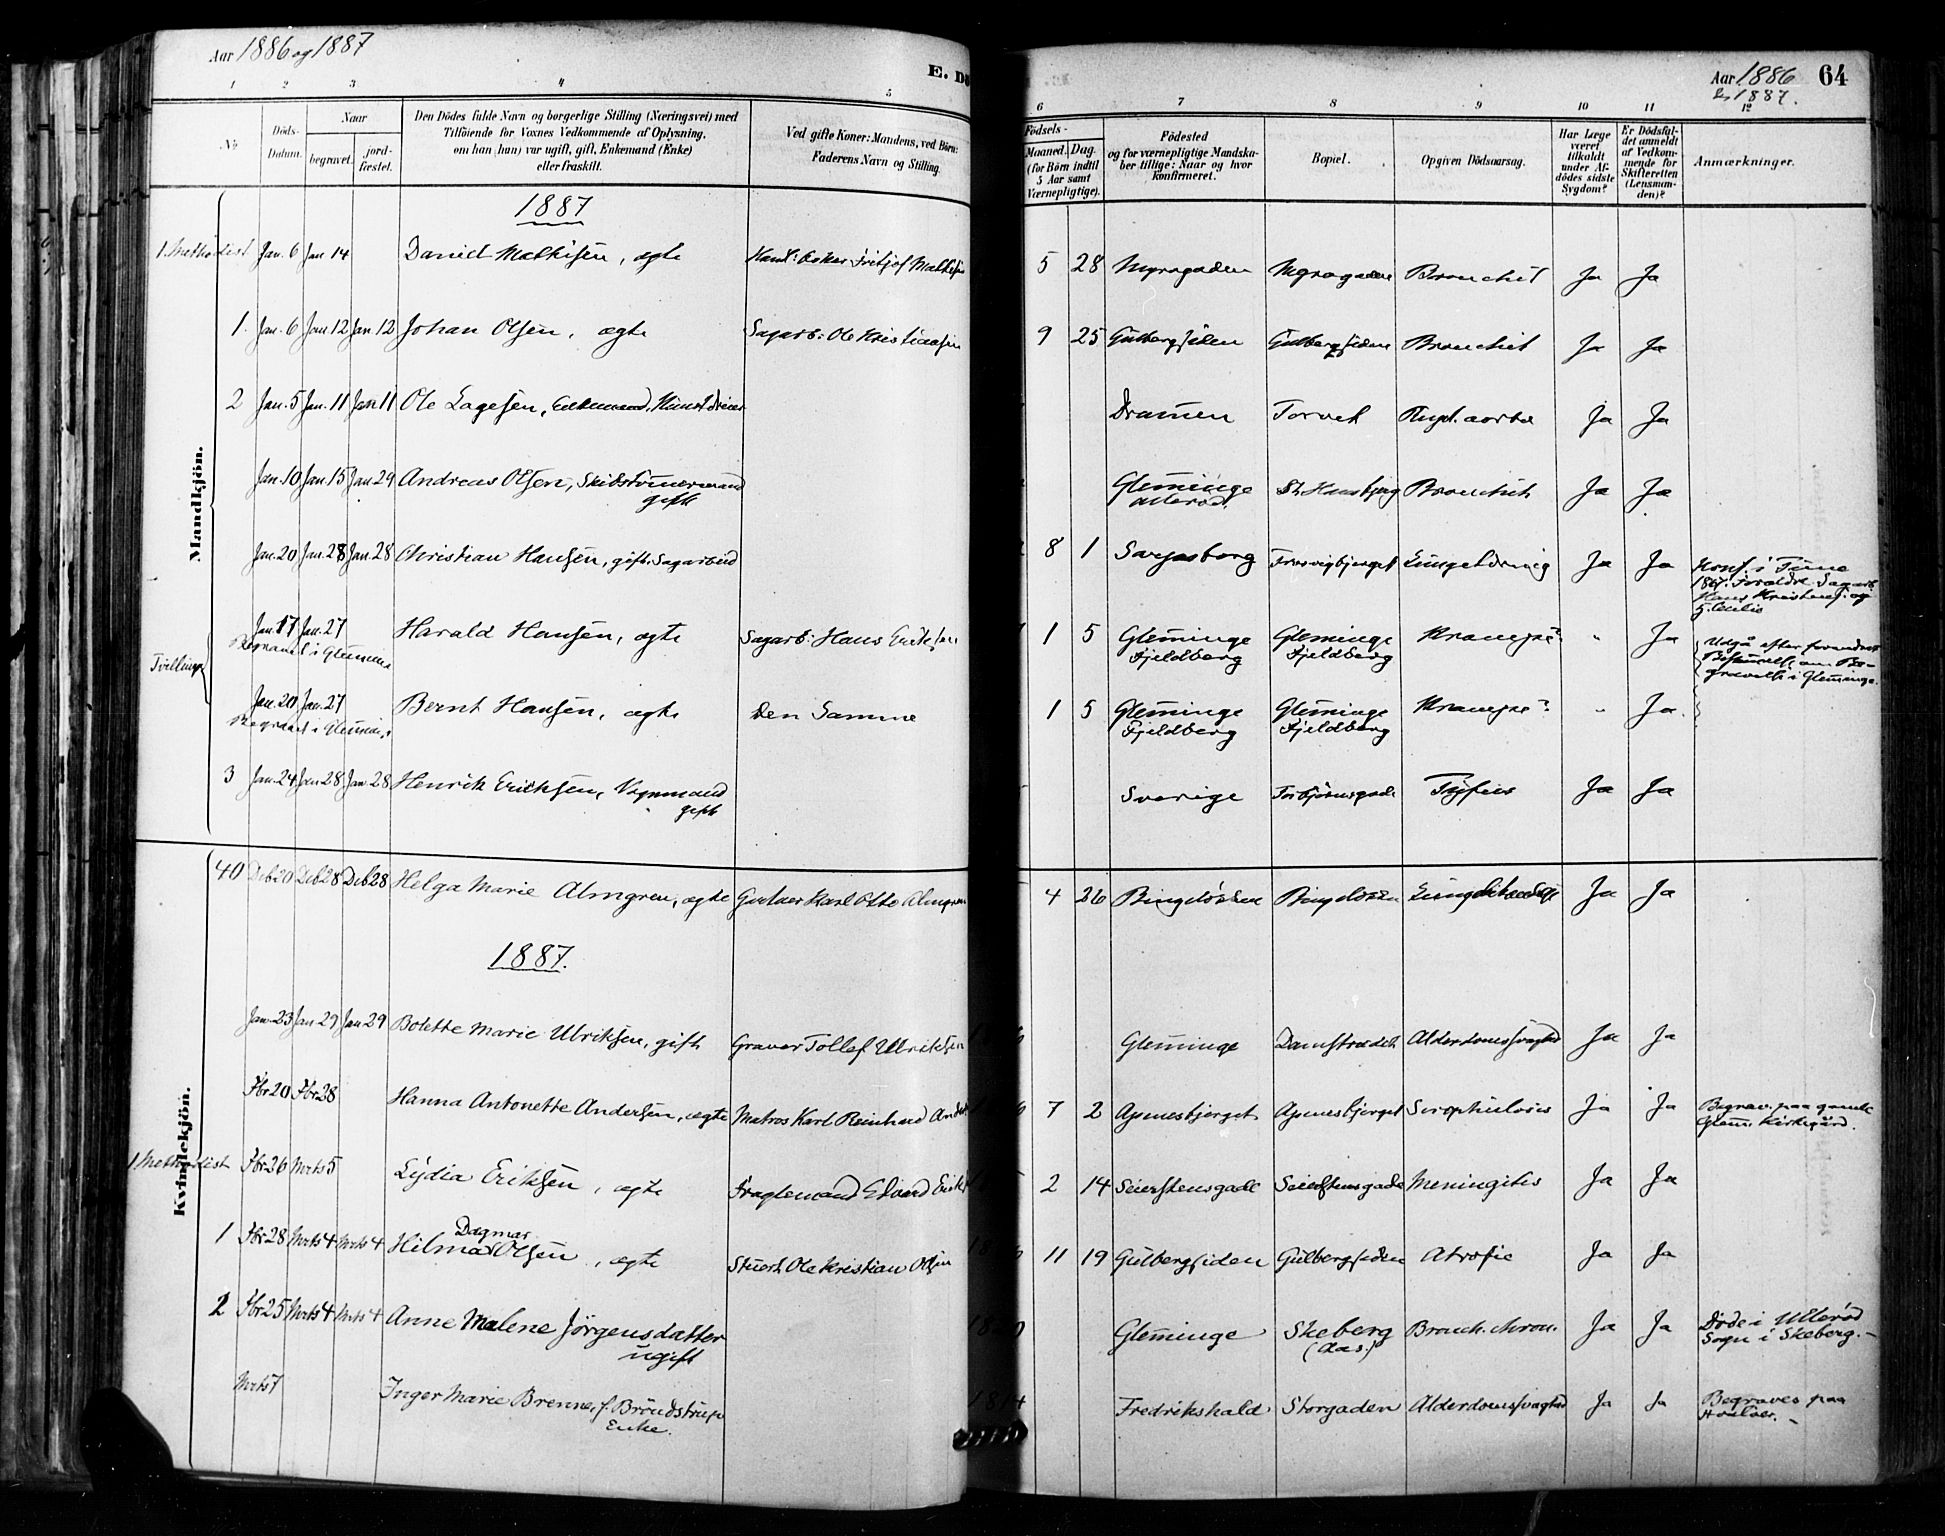 Aar 1886 og 1887
E. Dö
Aar 1886
og 1887.
64
1 2 3 4 5 6 7 8 9 10 11 12
No
Döds-Datum.
Naar
begravet.
jord-fæstet.
Den Dödes fulde Navn og borgerlige Stilling (Næringsvei) med
Tilföiende for Voxnes Vedkommende af Oplysning,
om han (hun) var ugift, gift, Enkemand (Enke)
eller fraskilt.
Ved gifte Koner: Mandens, ved Börn:
Faderens Navn og Stilling.
Födsels-
Maaned. Dag.
(for Börn indtil
5 Aar samt
Værnepligtige).
Födested
og for værnepligtige Mandska-
ber tillige: Naar og hvor
konfirmeret.
Bopæl.
Opgiven Dödsaarsag.
Har Læge
været
tilkaldt
under Af-
dödes sidste
Sygdom?
Er Dödsfal-
det anmeldt
af Vedkom-
mende for
Skifteretten
(Lensman-
den)?
Anmærkninger.
Mandkjön.
1887
1. Methodist Jan. 6 Jan 14 Daniel Mathisen, ægte Fritjof Mathisen 5 28 Myragaden Myragaden Bronchit Ja Ja
1. Jan. 6 Jan 12 Jan 12 Johan Olsen, ægte Sagarb: Ole Kristiansen 9 25 Gulbergsiden Gulbergsiden Bronchit Ja Ja
2 Jan. 5 Jan. 11 Jan 11 Ole Lagesen, Enkemand, Kunstdreier Dramen Torvet Rupt. aorta Ja Ja
Jan. 10 Jan. 15 Jan. 29 Andreas Olsen, Skibstömermand
gift
Gleminge
St. Hansbjerg Bronchit Ja Ja
Jan. 20 Jan. 28 Jan. 28 Christian Hansen, gift. Sagarbeid 8 1 Sarpsborg Trosvigbjerget Ja Ja
Konf. i Tune
1867. Foreldre Sagarb
Tvillinger
Jan. 17 Jan. 27 Harald Hansen, ægte Sagarb: Hans Eriksen 1 5 Gleminge
Fjeldberg
Gleminge
Fjeldberg
Krampe? " Ja
Begravet i Glemminge
Udgå efter forandret
Bestemmelse om Be-
gravelse i Gleminge.
Jan. 20 Jan. 27 Bernt Hansen, ægte Den Samme 1 5 Gleminge
Fjeldberg
Gleminge
Fjeldberg
Krampe? " Ja.
Begravet i Gleminge
3 Jan. 24 Jan. 28 Jan. 28 Henrik Eriksen, Vognmand
gift
Sverige Torbjörnsgade Tyfus Ja Ja
Kvindekjön.
40 Deb 20 Deb 28 Deb 28 Helga Marie Almgren, ægte Karl Otto Almgren 4 26 Ja Ja
1887.
Jan. 23 Jan 29 Jan 29 Bolette Marie Ulriksen, gift Graver Tollef Ulriksen Gleminge Damstrædet Alderdomssvaghed Ja Ja
Fbr. 20 Fbr. 28 Hanna Antonette Andersen, ægte Matros Karl Reinhard Anders 7 2 Apenesbjerget Apenesbjerget Scrophulosis Ja Ja
Begrav. paa gamle
Glem. Kirkegård.
1 Methodist Fbr. 26 Mrts 5 Lydia Eriksen, ægte Fragtemand Edvard Eriks 2 14 Seierstensgade Seierstensgade Meningitis Ja Ja
1 Fbr. 28 Mrts 4 Mrts 4 Hilma Dagmar Olsen, ægte Stuert Ole Kristian Olsen 11 19 Gulbergsiden Gulbergsiden Atrofie Ja Ja
2 Fbr. 25 Mrts 4 Mrts 4 Anne Malene Jörgensdatter
ugift
Gleminge Skeberg
(Aas.)
Bronch. chron. Ja Ja
Döde i Ullerød
Sogn i Skeberg.
Mrts 7 Inger Marie Brenne, f. Bröndstrup
Enke.
Fredrikshald Storgaden Alderdomssvaghed Ja Ja
Begraves paa
Hvaløer.